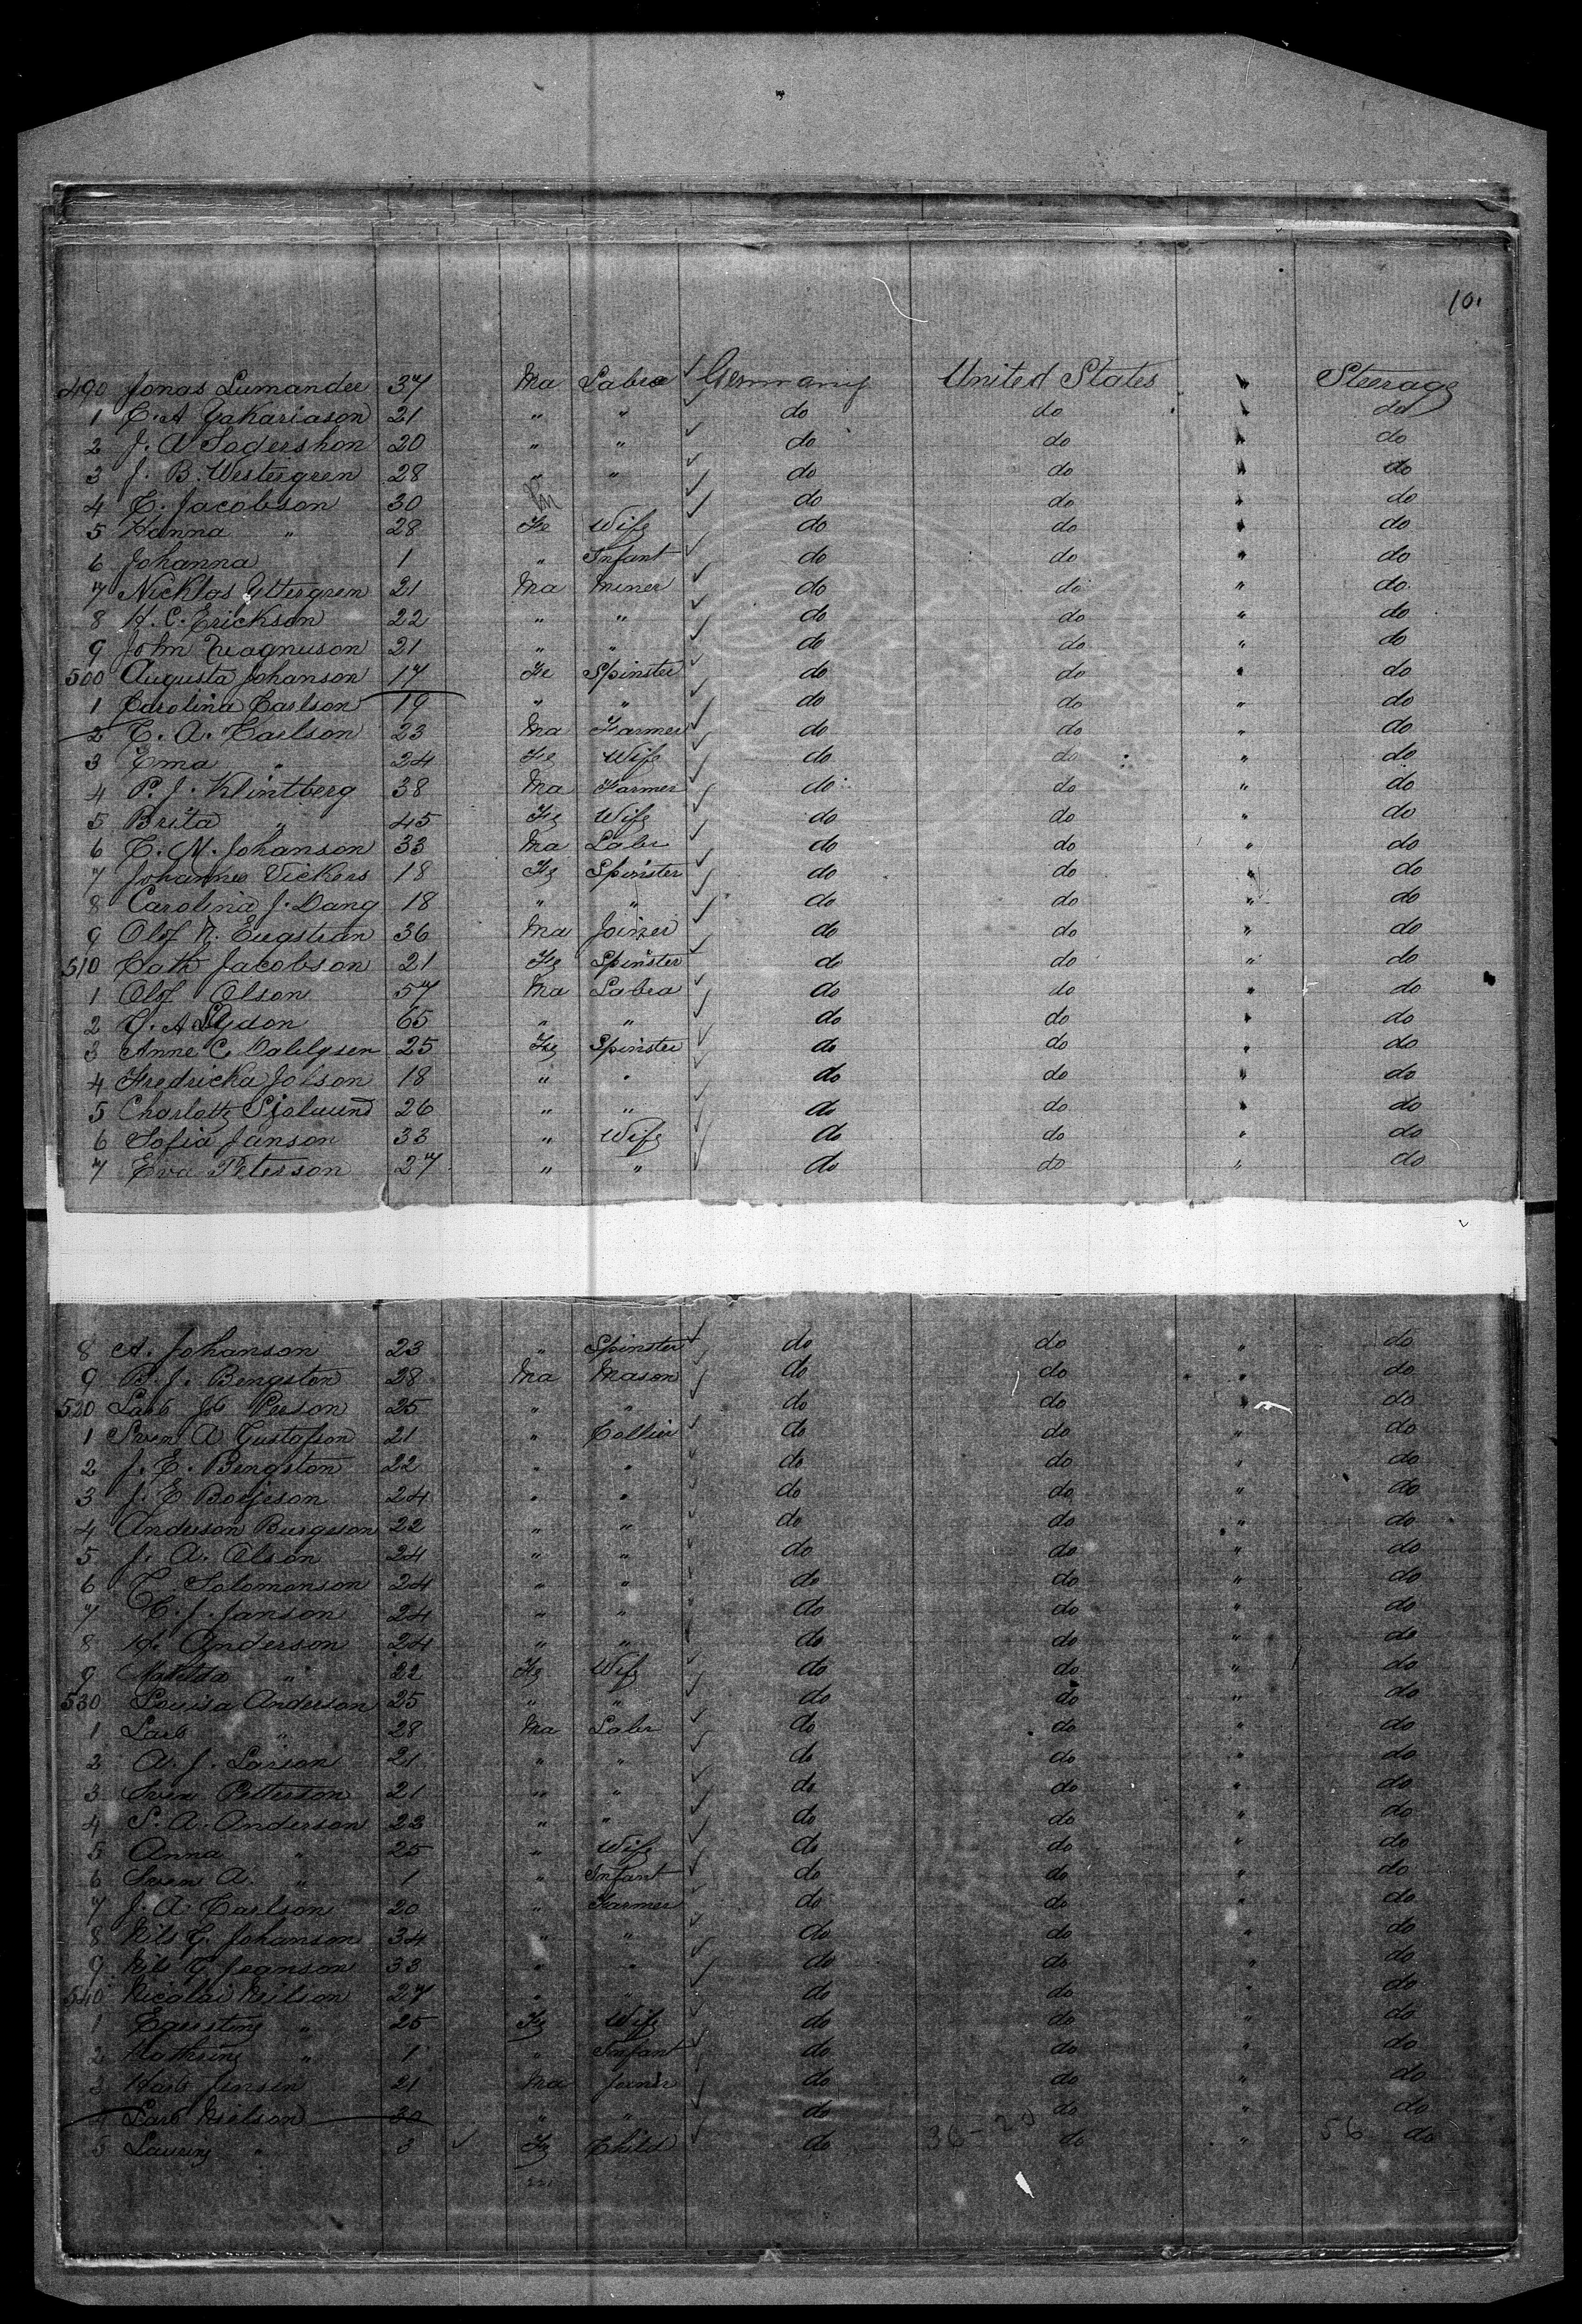 10.
490 Jonas Lumandee 37 Ma Labre ✓ Germany United States " Steerage
1 C. A Yakariason 21 " " ✓ do do " do
2 J. A Sodershon 20 " " ✓ do do " do
3 J. B. Westergren 28 " " ✓ do do " do
4 C. Jacobson 30 m ✓ do do " do
5 Hanna " 28 Fe Wife ✓ do do " do
6 Johanna 1 " Infant ✓ do do " do
7 Nicklos Yttergren 21 Ma Miner ✓ do do " do
8 H. C. Erickson 22 " " ✓ do do " do
9 John Magnuson 21 " " ✓ do do " do
500 Augusta Johanson 17 Fe Spinster ✓ do do " do
1 Carolina Carlson 19 " " ✓ do do " do
2 C. A. Carlson 23 Ma Farmer ✓ do do " do
3 Ema " 24 Fe Wife ✓ do do " do
4 P. J. Klintberg 38 Ma Farmer ✓ do do " do
5 Brita " 45 Fe Wife ✓ do do " do
6 C. N. Johanson 33 Ma Labr ✓ do do " do
7 Johanne Vickers 18 Fe Spinster ✓ do do " do
8 Carolina J. Dang 18 " " ✓ do do " do
9 Olof N. Eugstran 36 Ma Joiner ✓ do do " do
510 Cath Jacobson 21 Fe Spinster ✓ do do " do
1 Olof Olson 57 Ma Labra ✓ do do " do
2 65 " " ✓ do do " do
3 Anne C. 25 Fe Spinster ✓ do do " do
4 Fredricka Jobson 18 " " ✓ do do " do
5 Charlotte Sjolund 26 " " ✓ do do " do
6 Sofia Janson 33 " Wife ✓ do do " do
7 Eva Peterson 27 " " ✓ do do " do
8 A. Johanson 23 " Spinster ✓ do do " do
9 B. J. Bengston 28 Ma Mason ✓ do do " do
520 Lars Joh Peeson 25 " " ✓ do do " do
1 Sven A Gustafson 21 " Collier ✓ do do " do
2 J. E. Bengston 22 " " ✓ do do " do
3 J. E Borjeson 24 " " ✓ do do " do
4 Anderson Burgeson 22 " " ✓ do do " do
5 J. A. Olson 24 " " ✓ do do " do
6 C. Solomonson 24 " " ✓ do do " do
7 C. J. Janson 24 " " ✓ do do " do
8 H. Anderson 24 " " ✓ do do " do
9 Matilda " 22 Fe Wife ✓ do do " do
530 Louisa Anderson 25 " " ✓ do do " do
1 Lars " 28 Ma Labr ✓ do do " do
2 A. J. Larson 21 " " ✓ do do " do
3 Sven Petterson 21 " " ✓ do do " do
4 S. A. Anderson 22 " " ✓ do do " do
5 Anna " 25 " Wife ✓ do do " do
6 Sven A. " 1 " Infant ✓ do do " do
7 J. A. Carlson 20 " Farmer ✓ do do " do
8 Nils C. Johanson 34 " " ✓ do do " do
9 Nils C Jeanson 33 " " ✓ do do " do
540 Nicolai Neilson 27 " " ✓ do do " do
1 " 25 Fe Wife ✓ do do " do
2 Kathrine " 1 " Infant ✓ do do " do
3 Jensen 21 Ma Joiner ✓ do do " do
4 Lars Nielson 30 " " ✓ do do " do
5 Laurine " 3 ✓ Fe Child ✓ do 36-20 do " 56 do